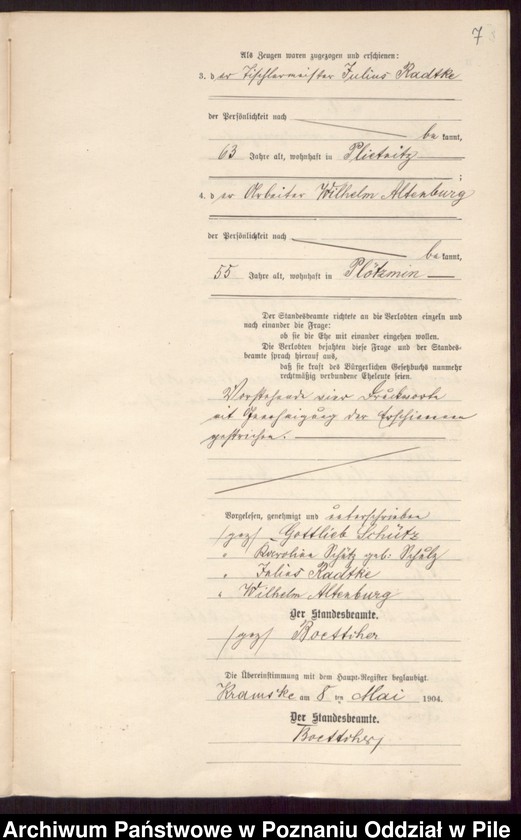 7
Als Zeugen waren zugezogen und erschienen:
3. d er Tischlermeister Julius Radtke
der Persönlichkeit nach
be kannt,
63 Jahre alt, wohnhaft in Plietnitz
;
4. d er Arbeiter Wilhelm Altenburg
der Persönlichkeit nach
be kannt,
55 Jahre alt, wohnhaft in Plötzmin
Der Standesbeamte richtete an die Verlobten einzeln und
nach einander die Frage:
ob sie die Ehe mit einander eingehen wollen.
Die Verlobten bejahten diese Frage und der Standes-
beamte sprach hierauf aus,
daß sie kraft des Bürgerlichen Gesetzbuchs nunmehr
rechtmäßig verbundene Eheleute seien.
Vorstehende vier Druckworte
mit Genehmigung der Erschienenen
gestrichen.
Vorgelesen, genehmigt und unterschrieben
(gez) Gottlieb Schütz
" Karoline Schütz geb. Schulz
" Julius Radtke
" Wilhelm Altenburg
Der Standesbeamte.
(gez) Boettcher
Die Übereinstimmung mit dem Haupt-Register beglaubigt.
Kramske am 8 ten Mai 1904.
Der Standesbeamte.
Boettcher
Archiwum Państwowe w Poznaniu Oddział w Pile